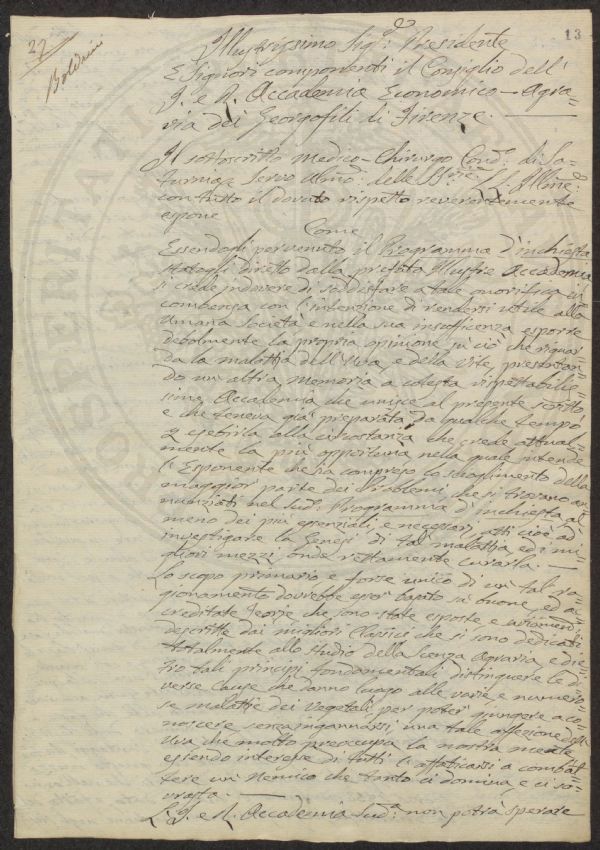 27
Boldrini
13
Illustrissimo Sig.e Presidente
E Signori componenti il Consiglio dell'
I. e R. Accademia Economico-Agra=
ria dei Georgofili di Firenze.
Il sottoscritto Medico-Chirurgo Cond.o di Sa=
turnia Servo Umo: delle SS.rie LL. Illme:
con tutto il dovuto rispetto reverentemente
espone
Come
Essendogli pervenuto il Programma d'inchiesta
statogli diretto dalla prefata Illustre Accademia
si crede in dovere di soddisfare a tale onorifica in=
combenza con l'intenzione di rendersi utile alla
Umana Società e nella sua insufficenza esporre
debolmente la propria opinione su ciò che riguar=
da la malattia dell'Uva, e della Vite, presentan=
do un'altra Memoria a codesta rispettabilis=
sima Accademia che unisce al presente scritto,
e che teneva già preparata da qualche tempo
p esebirla alla circostanza che crede attual=
mente la più opportuna nella quale intende
l'Esponente che sia compreso lo scioglimento della
maggior parte dei Problemi che si trovano an=
nunziati nel sud.o Programma d'inchiesta al
meno dei più essenziali, e necessarj atti cioè ad
investigare la Genesi di tal malattia, ed i mi=
gliori mezzi onde rettamente curarla.
Lo scopo primario e forse unico di un tal ra=
gionamento dovrebbe esser basato su buone, ed ac
creditate Teorje che sono state esposte e
descritte dai migliori Classici che si sono dedicati
totalmente allo studio della Scenza Agraria e die=
tro tali principj fondamentali distinguere le di=
verse cause che danno luogo alle varie, e numero=
se malattie dei Vegetali per poter giungere a co=
noscere senza ingannarsi una tale affezione dell'
Uva che molto preoccupa la nostra mente
essendo interesse di tutti l'affaticarsi a combat=
tere un Nemico che tanto ci domina, e ci so=
vrasta.
L'I. e R. Accademia Sud.a non potrà sperare